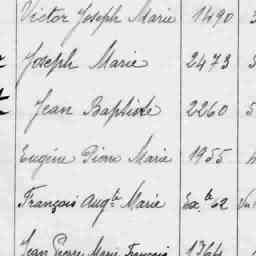 Victor Joseph Marie 1490
Joseph Marie 2473
Jean Baptiste 2260
Eugène Pierre Marie 1955
François Augte Marie 62
Jean Pierre Marie François 1764